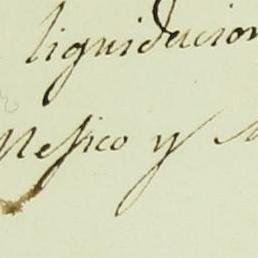 liquidacion
Mesico y